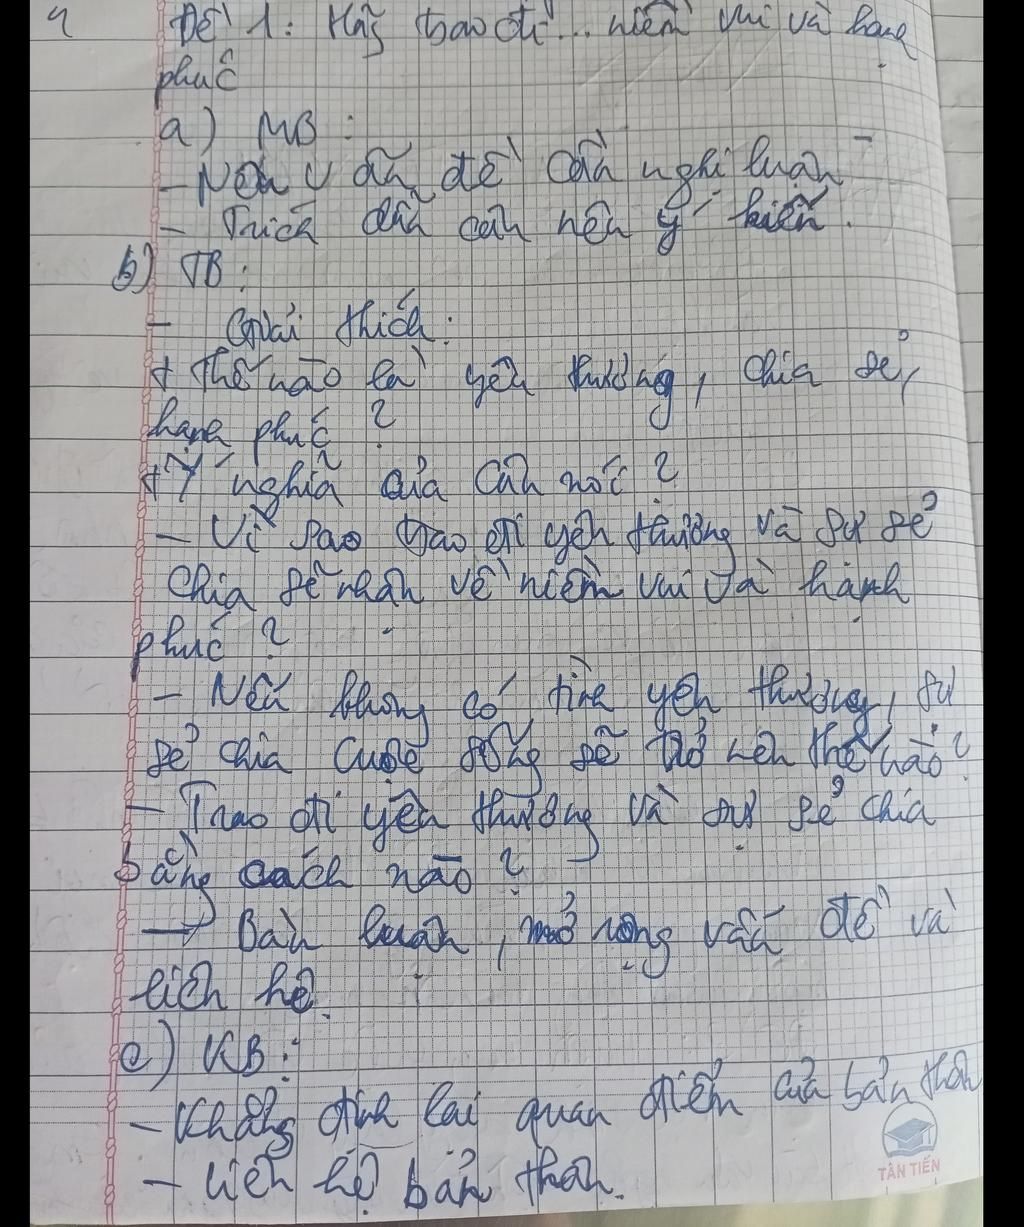 Đề 1: Hãy trao đi... niềm vui và hạnh
phúc
a) MB:
- Nêu vấn đề cần nghị luận
- Trích dẫn câu nêu ý kiến.
b) TB:
- Giải thích:
+ Thế nào là yêu thương, chia sẻ,
hạnh phúc?
+ Ý nghĩa của câu nói?
- Vì sao trao đi yêu thương và sự sẻ
chia sẽ nhận về niềm vui và hạnh
phúc?
- Nếu không có tình yêu thương, sự
sẻ chia cuộc sống sẽ trở nên thế nào?
- Trao đi yêu thương và sự sẻ chia
bằng cách nào?
→ Bàn luận, mở rộng vấn đề và
liên hệ.
c) KB:
- Khẳng định lại quan điểm của bản thân
- Liên hệ bản thân.
TÂN TIẾN